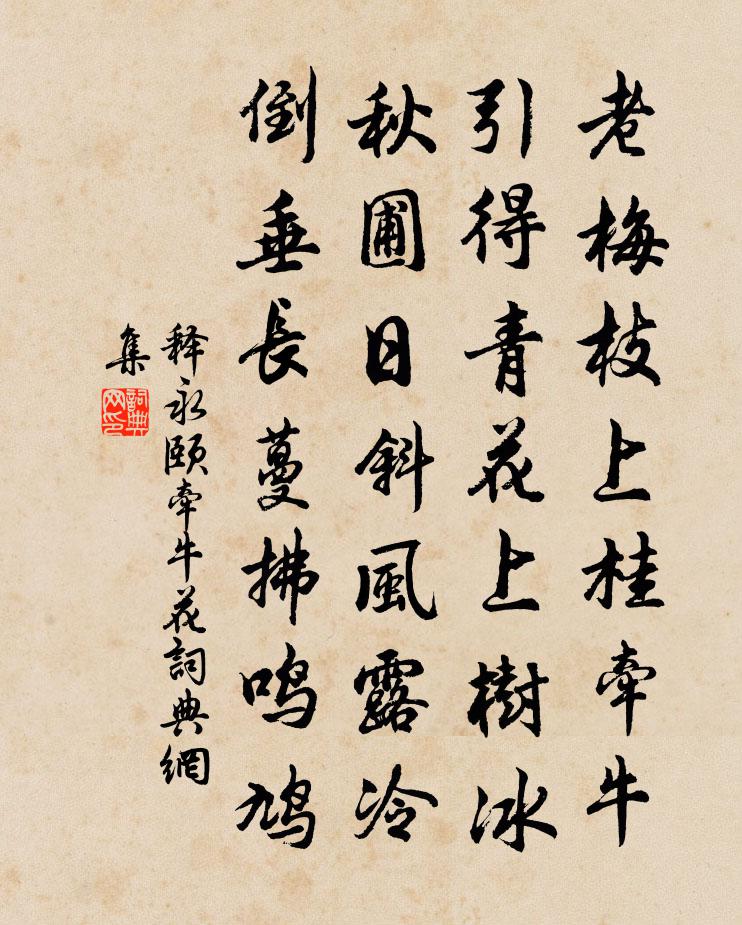 老梅枝上桂牽牛
引得青花上樹冰
秋圃日斜風露冷
倒垂長蔓拂鸣鸠
释永颐牽牛花詞典網
集
詞典
网印